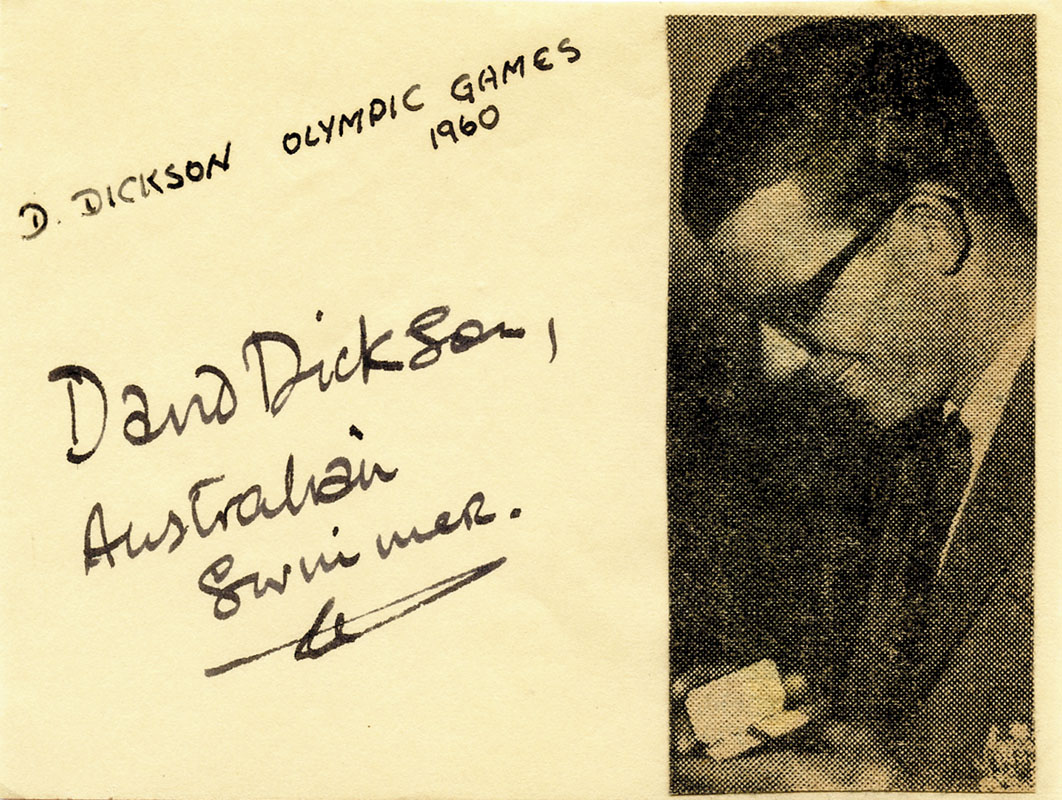 D. DICKSON OLYMPIC GAMES
1960
David Dickson,
Australian
Swimmer.